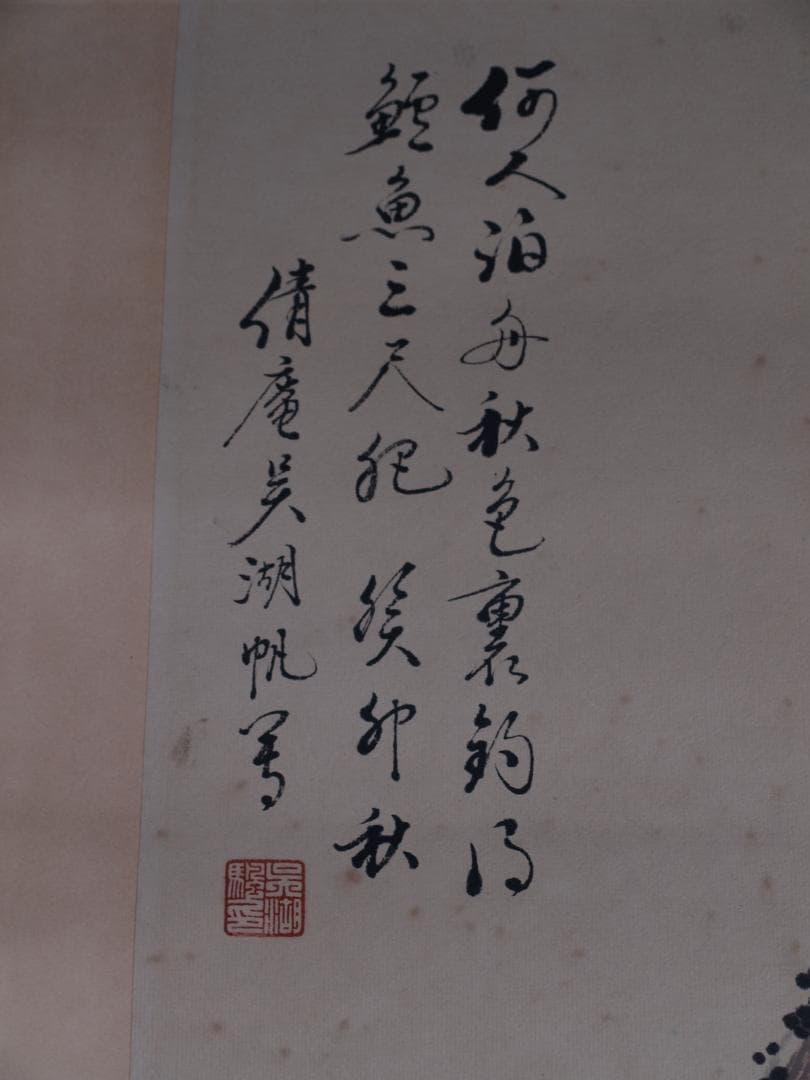 何人泊舟秋色裏釣得
鱸魚三尺肥 癸卯秋
倩庵吳湖帆寫
吳湖驄印